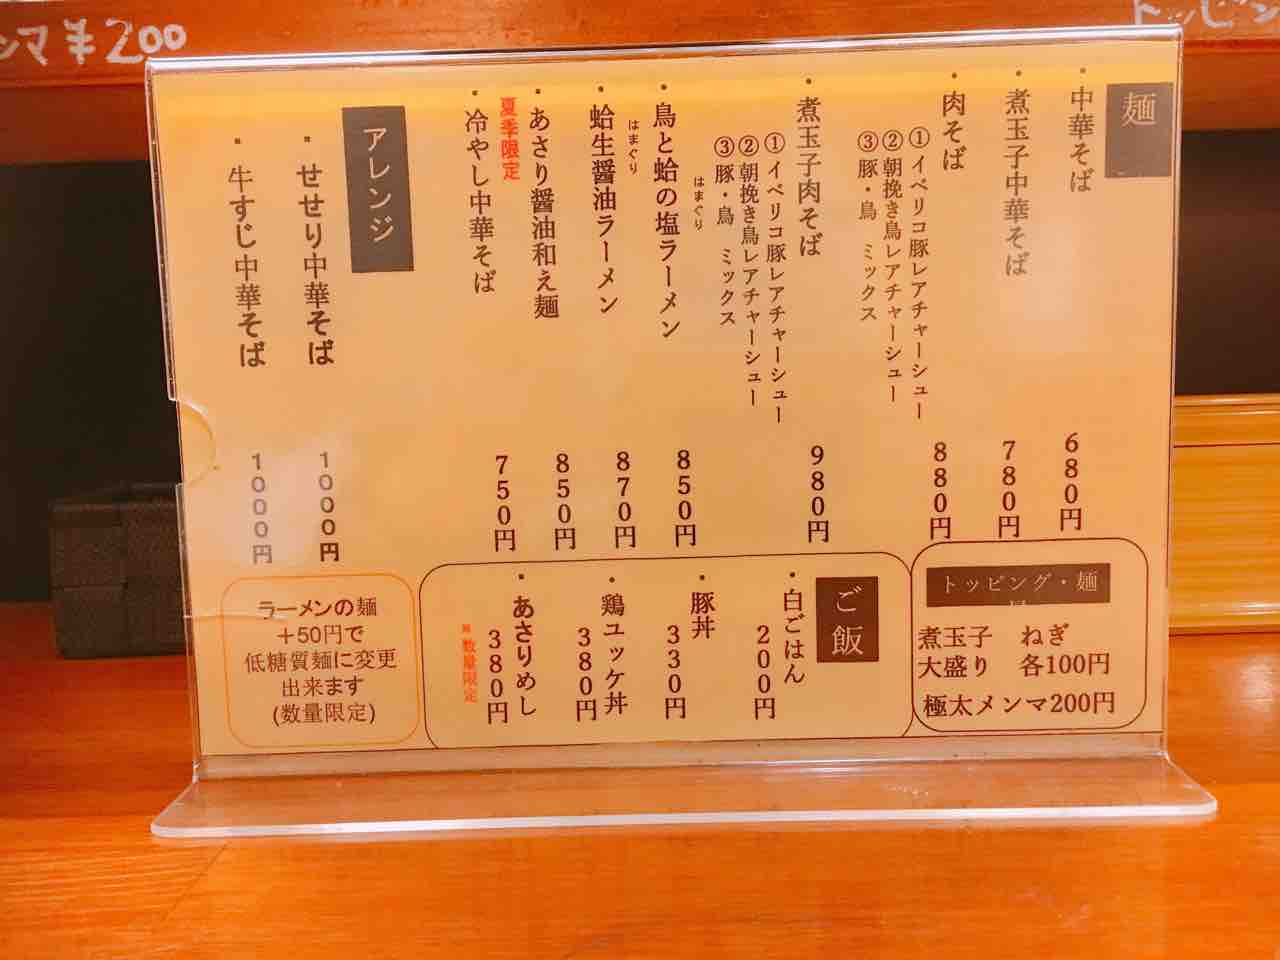 ンマ¥200
トッピン
麺
・中華そば 680円
・煮玉子中華そば 780円
・肉そば 880円
①イベリコ豚レアチャーシュー
②朝挽き鳥レアチャーシュー
③豚・鳥 ミックス
・煮玉子肉そば 980円
①イベリコ豚レアチャーシュー
②朝挽き鳥レアチャーシュー
③豚・鳥 ミックス
はまぐり
・鳥と蛤の塩ラーメン 850円
はまぐり
・蛤生醤油ラーメン 870円
・あさり醤油和え麺 850円
夏季限定
・冷やし中華そば 750円
アレンジ
・せせり中華そば 1000円
・牛すじ中華そば 1000円
トッピング・麺
煮玉子 ねぎ
大盛り 各100円
極太メンマ200円
ご飯
・白ごはん 200円
・豚丼 330円
・鶏ユッケ丼 380円
・あさりめし 380円
※数量限定
ラーメンの麺
+50円で
低糖質麺に変更
出来ます
(数量限定)